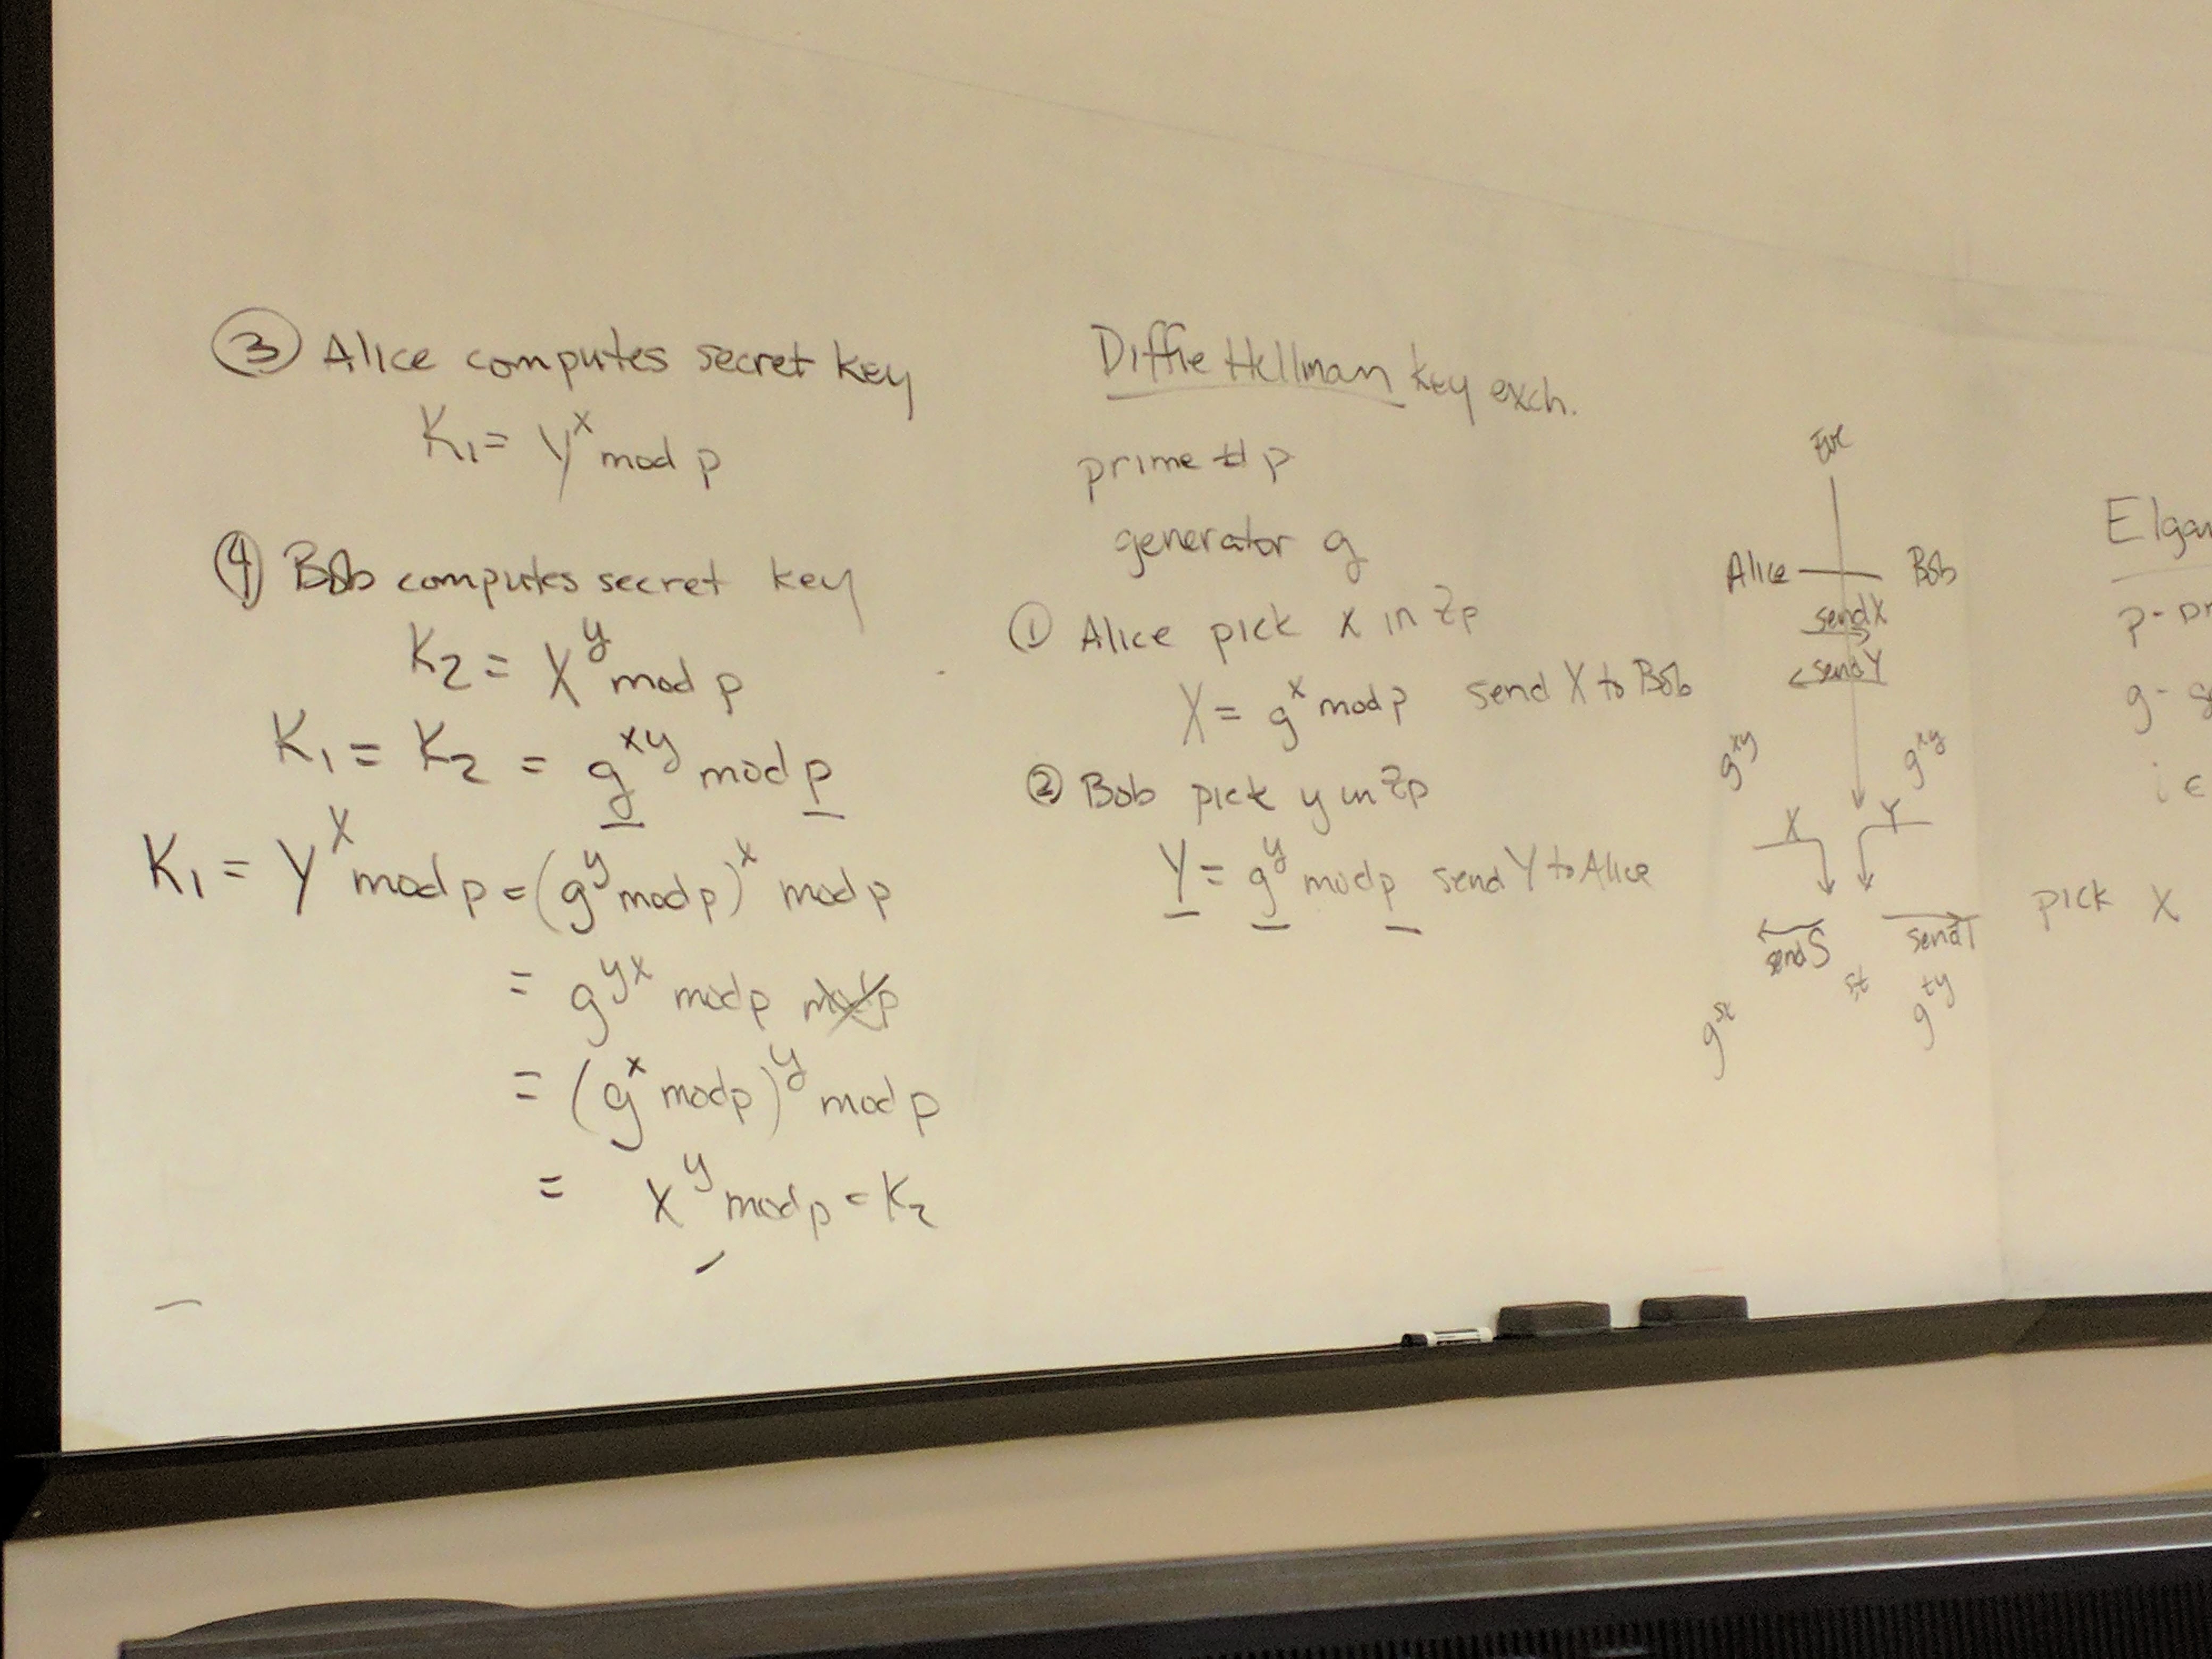 ③ Alice computes secret key
K₁ = Y^x mod p
④ Bob computes secret key
K₂ = X^y mod p
K₁ = K₂ = g^xy mod p
K₁ = Y^x mod p = (g^y mod p)^x mod p
= g^yx mod p mod p
= (g^x mod p)^y mod p
= X^y mod p = K₂
Diffie Hellman key exch.
prime # p
generator g
① Alice pick x in Zp
X = g^x mod p send X to Bob
② Bob pick y in Zp
Y = g^y mod p send Y to Alice
Eve
Alice Bob
send X
send Y
g^xy g^xy
X Y
send S send T
st
g^ty
Elga
p - pr
g - g
i ∈
pick x